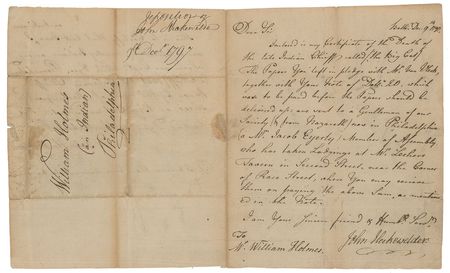 Deposition of
John Heckewelder
Decbr. 1797
William Holmes
(an Indian)
Philadelphia
Bethlm. Decr. 9th 1797
Dear Sir
Inclosed is my Certificate of the Death of
the late Indian Chieff called the King
The Papers You left in pledge with Mr. Van Vleck,
together with Your Note of Dolls. which
was to be paid before the Papers should be
delivered up; are sent to a Gentleman of our
Society (from Nazareth) now in Philadelphia
a Mr. Jacob Eyerly, Member of Assembly
who has taken Lodgings at Mr. Lesher's
Tavern in Second Street, near the Corner
of Race Street, where You may receive
them on paying the above Sum, as mention
ed in the Note.
I am Your sincere friend & Humbl. Servt.
John Heckewelder
To
Mr. William Holmes.